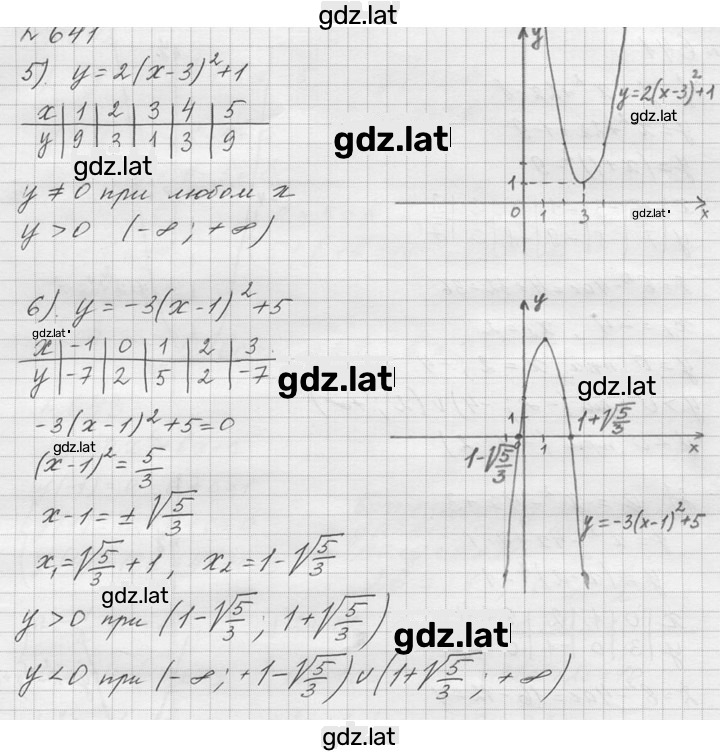 gdz.lat
№ 641
5). y = 2(x-3)²+1
x 1 2 3 4 5
y 9 3 1 3 9
gdz.lat
y ≠ 0 при любом x
y > 0 (-∞; +∞)
gdz.lat
y
y=2(x-3)²+1
gdz.lat
1
0 1 3
gdz.lat
x
6). y = -3(x-1)²+5
gdz.lat
x -1 0 1 2 3
y -7 2 5 2 -7
gdz.lat
-3(x-1)²+5=0
gdz.lat
(x-1)² = 5/3
x-1 = ± √5/3
x₁ = √5/3 + 1, x₂ = 1-√5/3
gdz.lat
y > 0 при (1-√5/3; 1+√5/3)
gdz.lat
y < 0 при (-∞; +1-√5/3) ∪ (1+√5/3; +∞)
y
gdz.lat
1
1+√5/3
1-√5/3
0
1
x
y=-3(x-1)²+5
gdz.lat